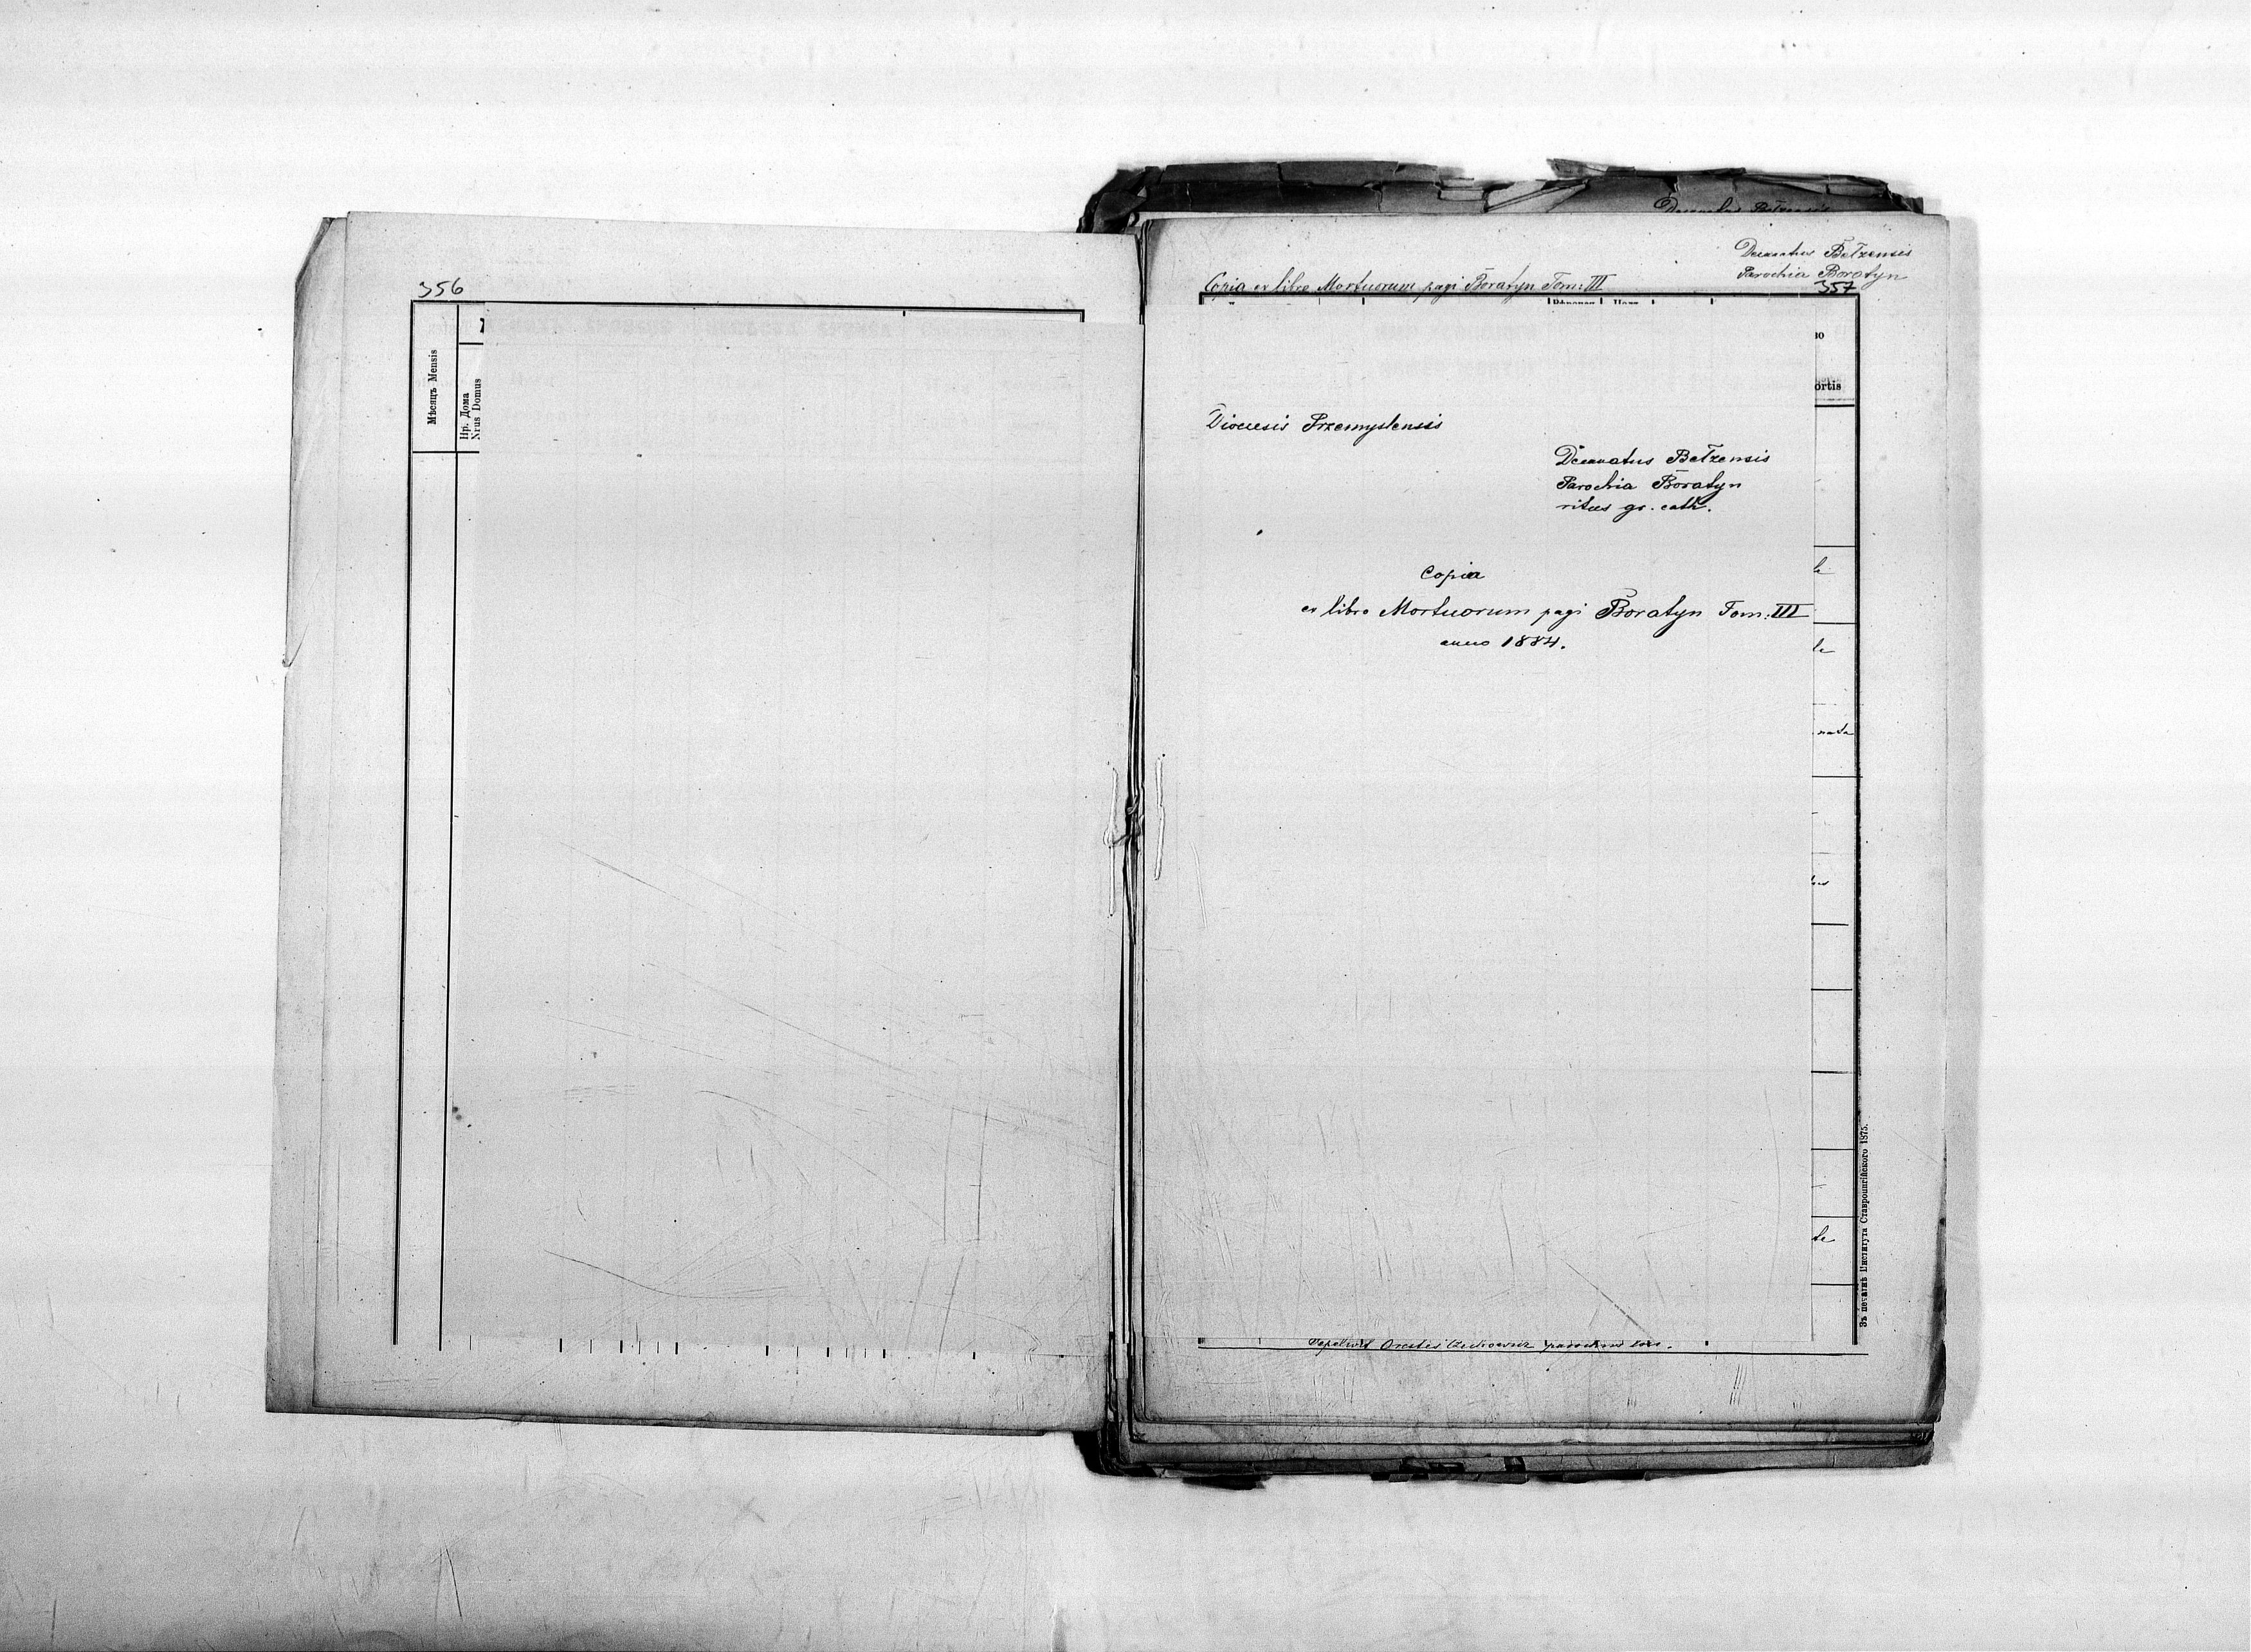 356
Мѣсяцъ Mensis
Нр. Дома
Nrus Domus
Decanatus Bełzensis
Parochia Boratyn
Copia ex libro Mortuorum pagi Boratyn Tom: III
357
ortis
Dioecesis Przemyslensis
Decanatus Bełzensis
Parochia Boratyn
ritus gr. cath.
Copia
ex libro Mortuorum pagi Boratyn Tom: III
anno 1884.
Зъ печатнѣ Института Ставропигійского 1875.